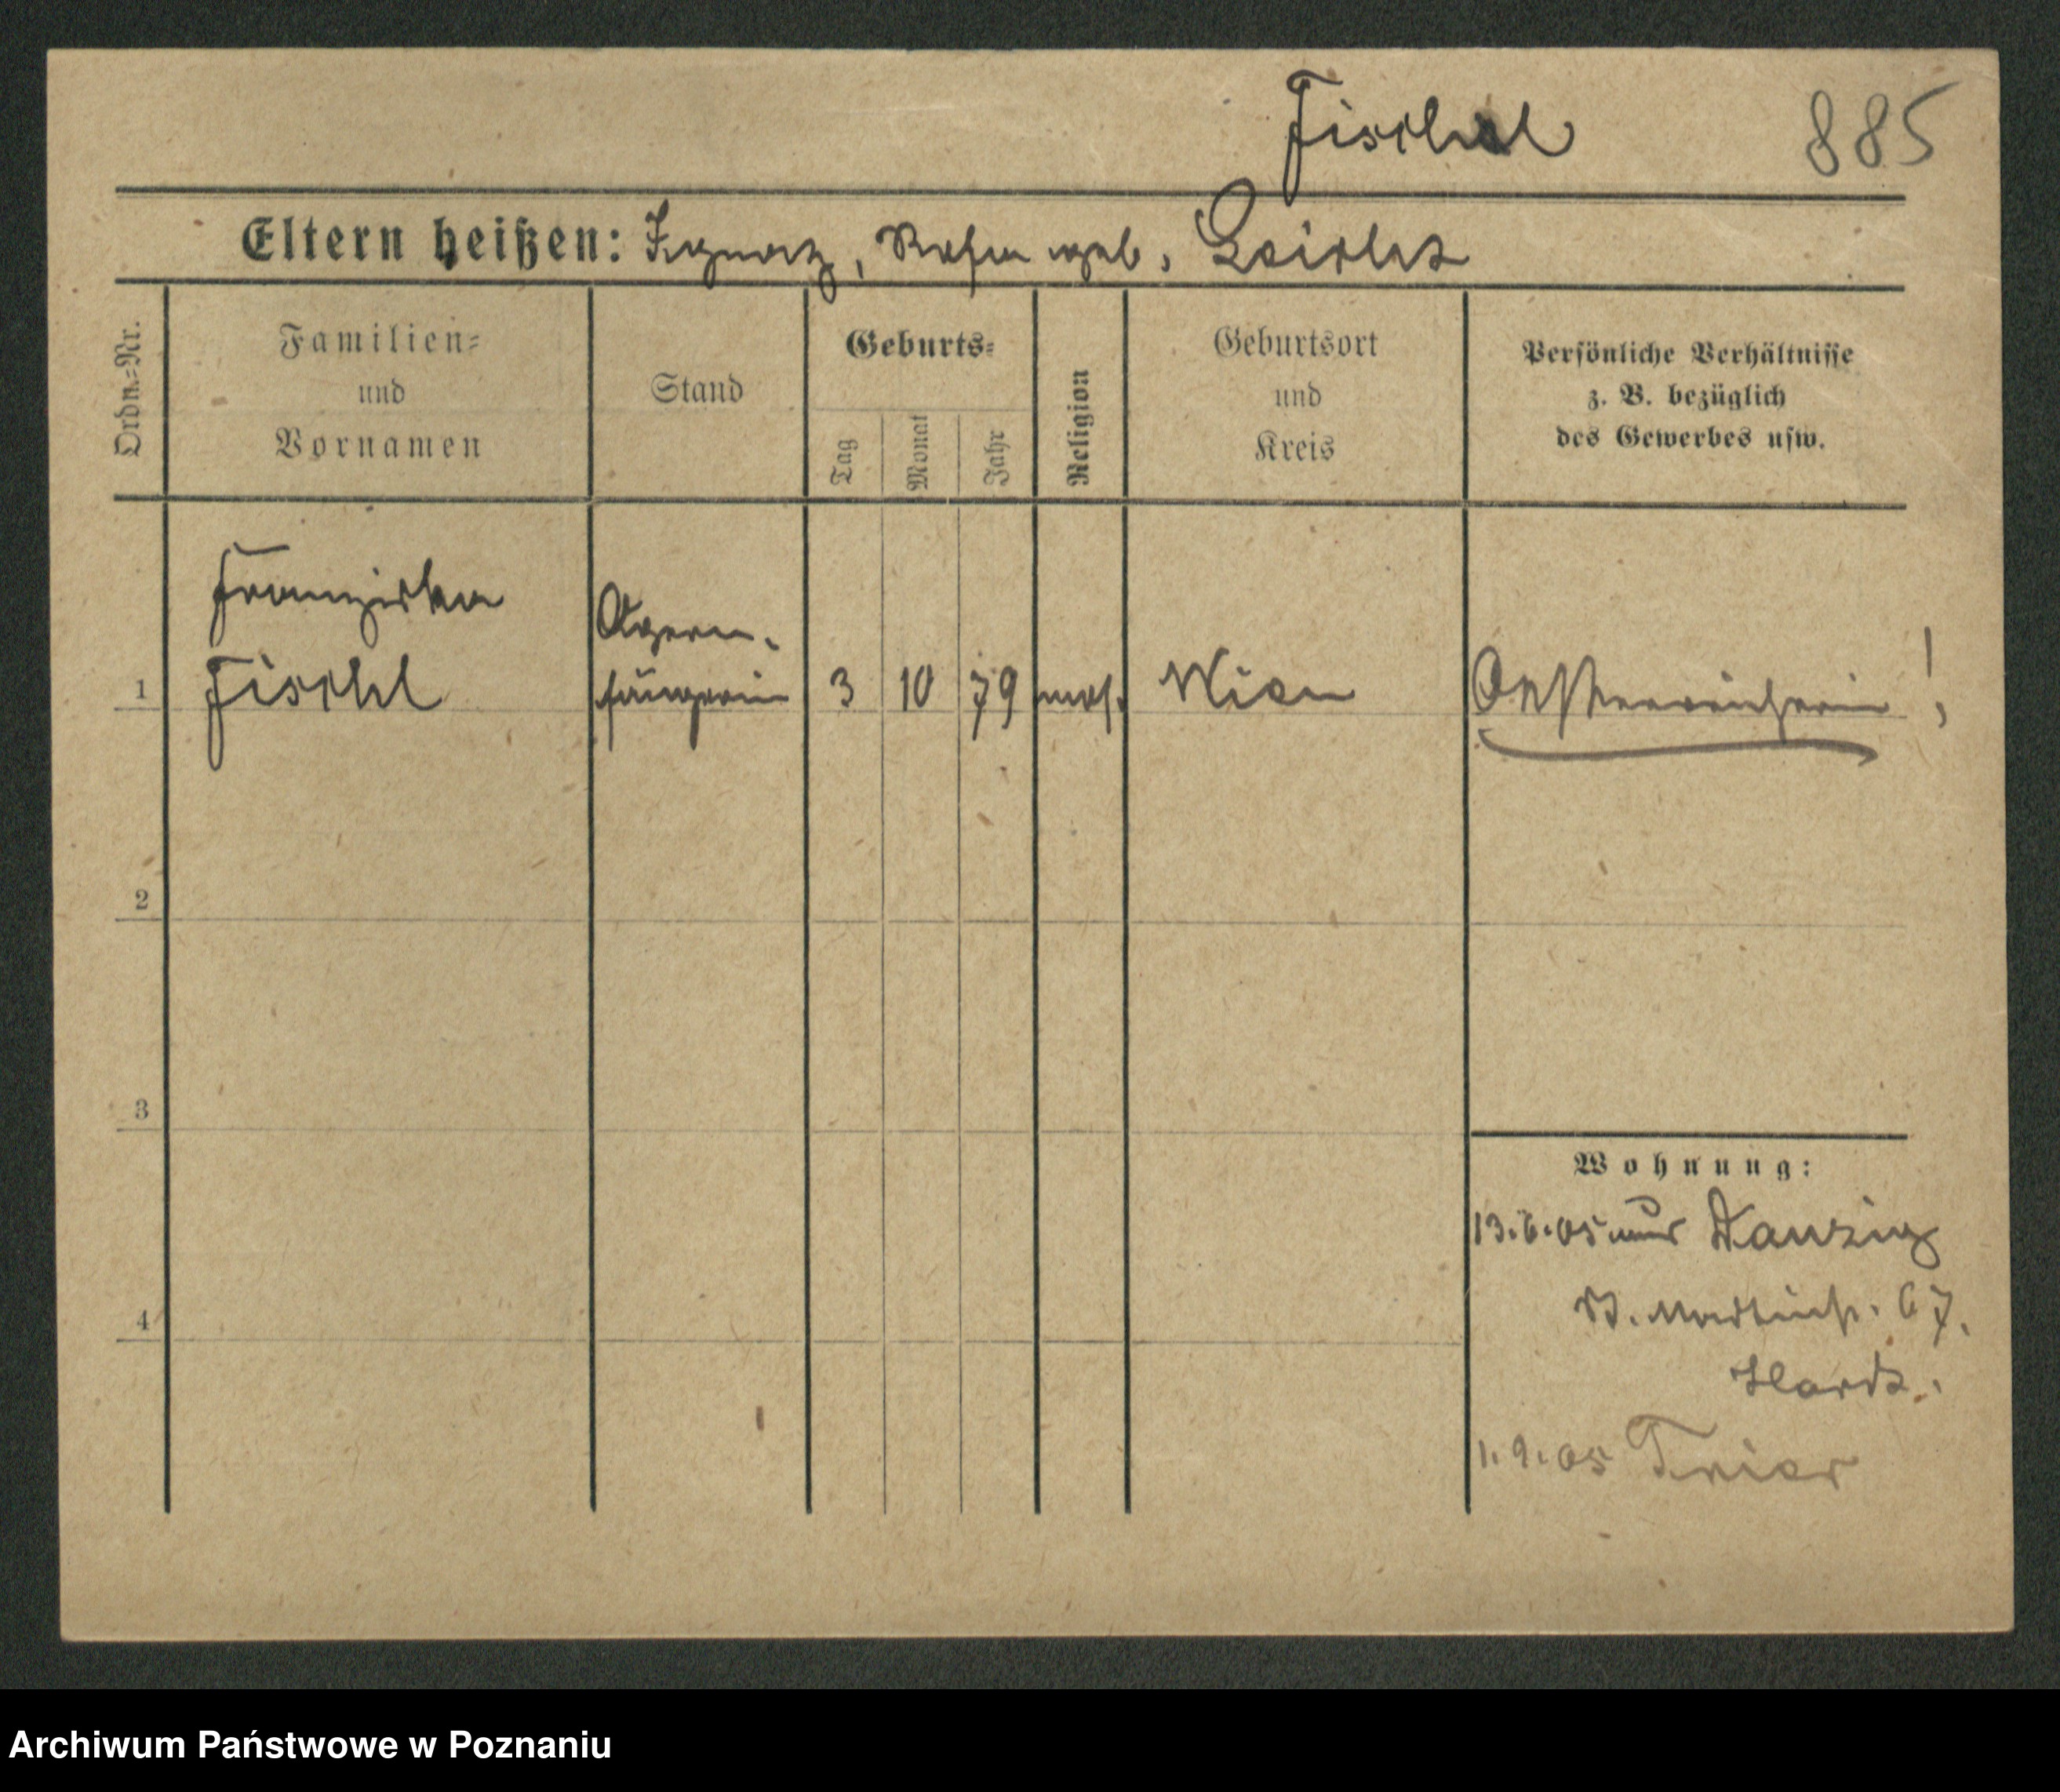 Fischl
885
Eltern heißen: Ignatz, Rosa geb. 
Ordn.=Nr.
Familien=
und
Vornamen
Stand
Geburts=
Tag
Monat
Jahr
Religion
Geburtsort
und
Kreis
Persönliche Verhältnisse
z. B. bezüglich
des Gewerbes usw.
Franziska
Opern-
1 Fischl sängerin 3 10 79 mos. Wien Oesterreicherin !
2
3
4
Wohnung:
13.6.05 aus Danzig
St. Martinstr. 67.
1.9.05 Trier
Archiwum Państwowe w Poznaniu